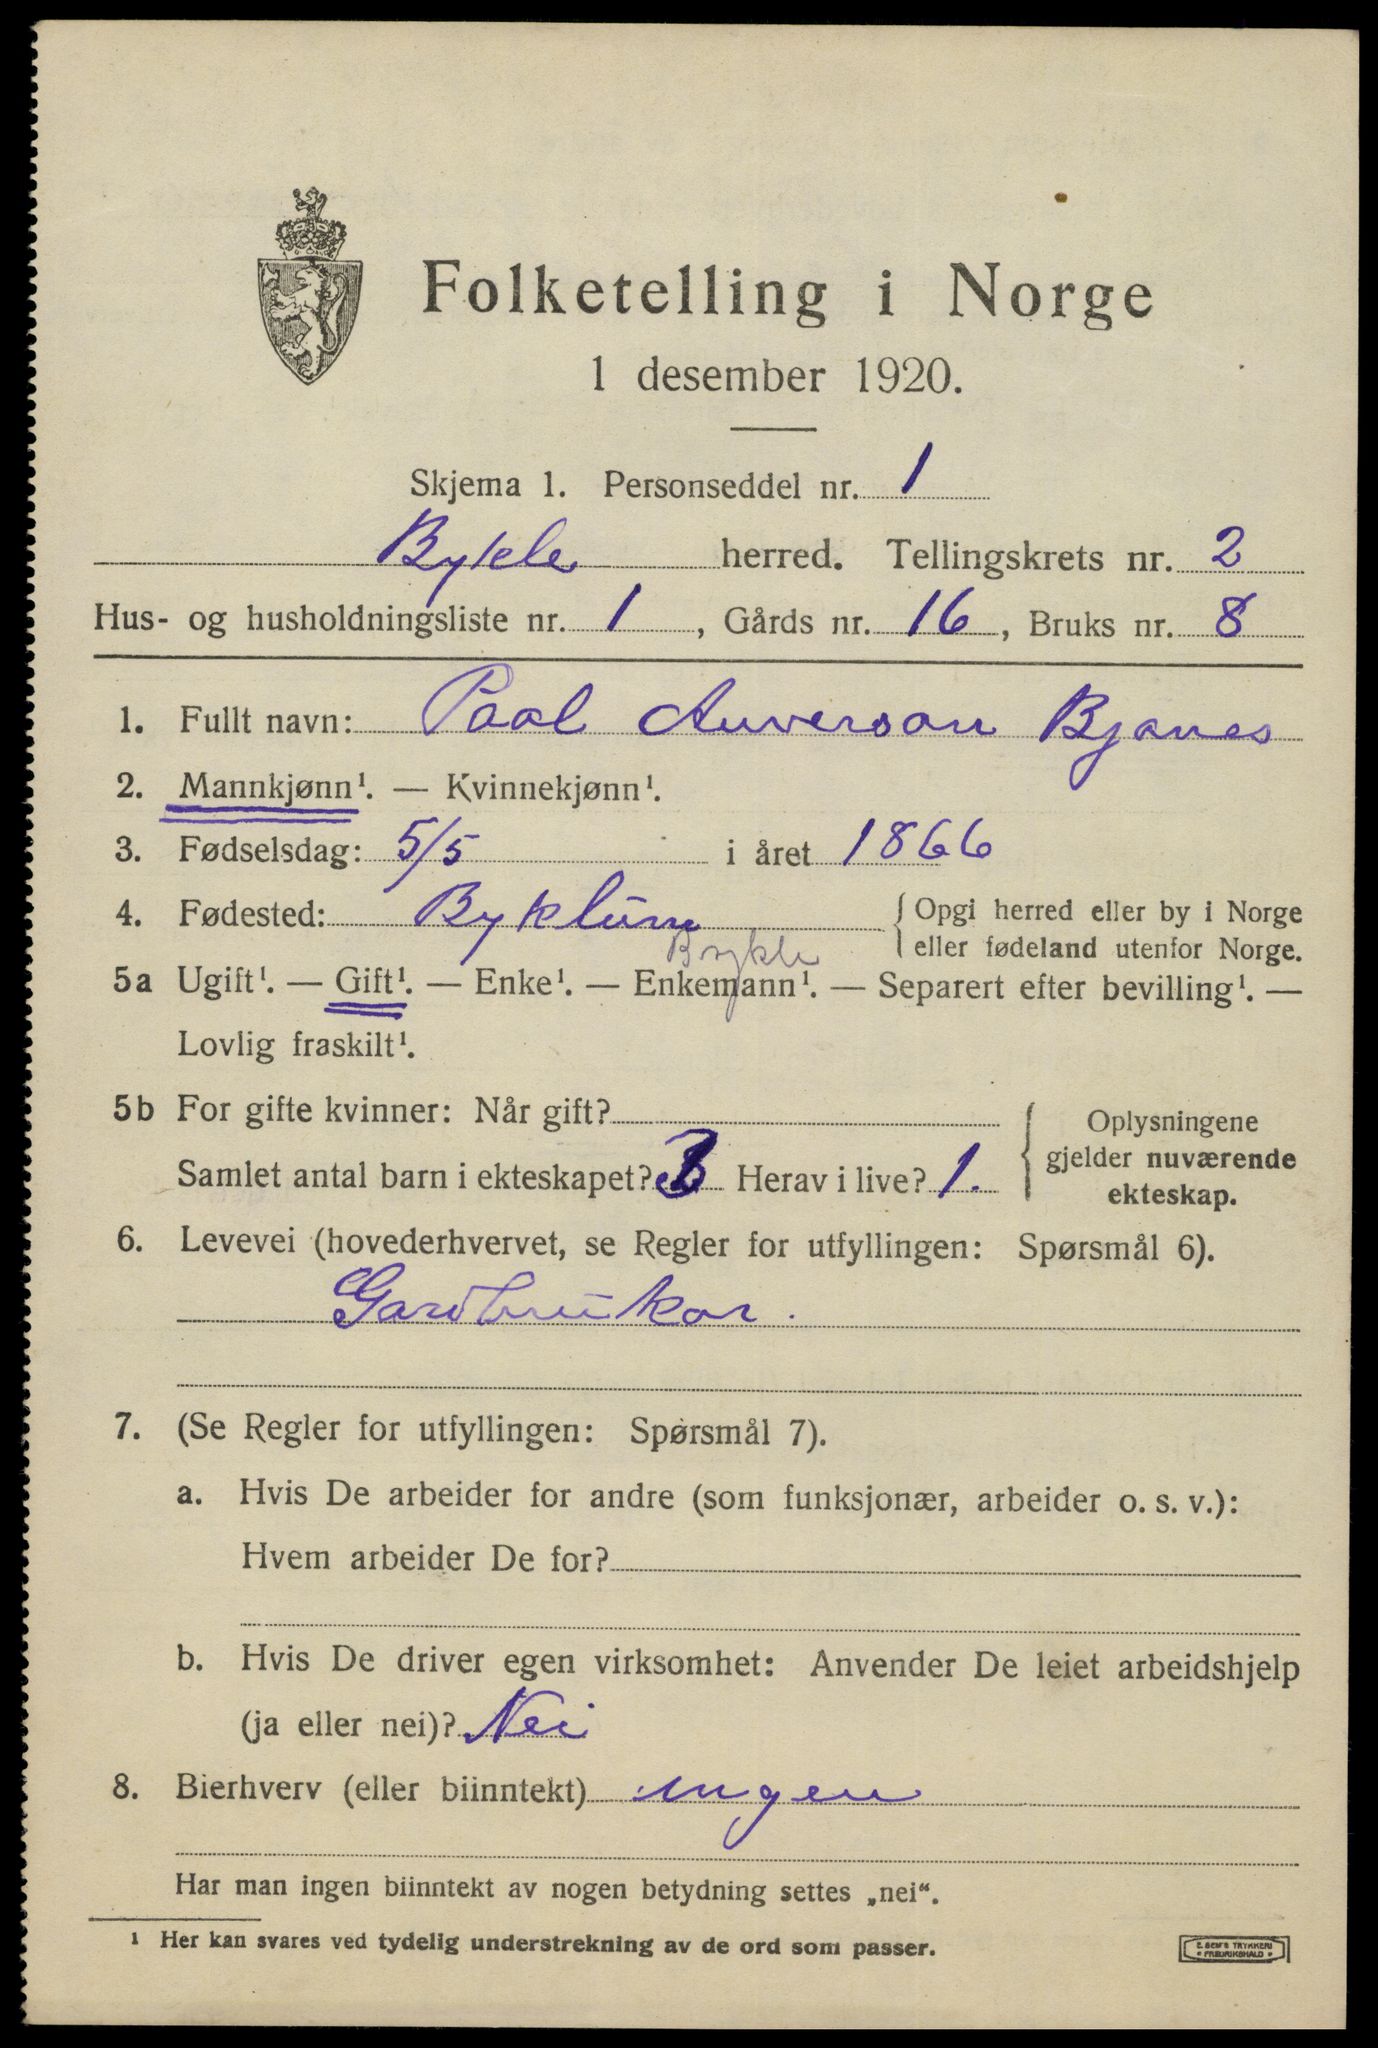 Folketelling i Norge
1 desember 1920.
Skjema 1. Personseddel nr. 1
Bykle herred. Tellingskrets nr. 2
Hus- og husholdningsliste nr. 1, Gårds nr. 16, Bruks nr. 8
1. Fullt navn: Paal Anverson Bjanes
2. Mannkjønn¹. — Kvinnekjønn¹.
3. Fødselsdag: 5/5 i året 1866
4. Fødested: Byklum { Opgi herred eller by i Norge
eller fødeland utenfor Norge.
Bykle
5a Ugift¹. — Gift¹. — Enke¹. — Enkemann¹. — Separert efter bevilling¹. —
Lovlig fraskilt¹.
5b For gifte kvinner: Når gift?
Samlet antal barn i ekteskapet? Herav i live? 1.
{ Oplysningene
gjelder nuværende
ekteskap.
6. Levevei (hovederhvervet, se Regler for utfyllingen: Spørsmål 6).
Gardbrukar.
7. (Se Regler for utfyllingen: Spørsmål 7).
a. Hvis De arbeider for andre (som funksjonær, arbeider o. s. v.):
Hvem arbeider De for?
b. Hvis De driver egen virksomhet: Anvender De leiet arbeidshjelp
(ja eller nei)? Nei
8. Bierhverv (eller biinntekt) ingen
Har man ingen biinntekt av nogen betydning settes „nei“.
¹ Her kan svares ved tydelig understrekning av de ord som passer.
E. SEM'S TRYKKERI
FREDRIKSHALD